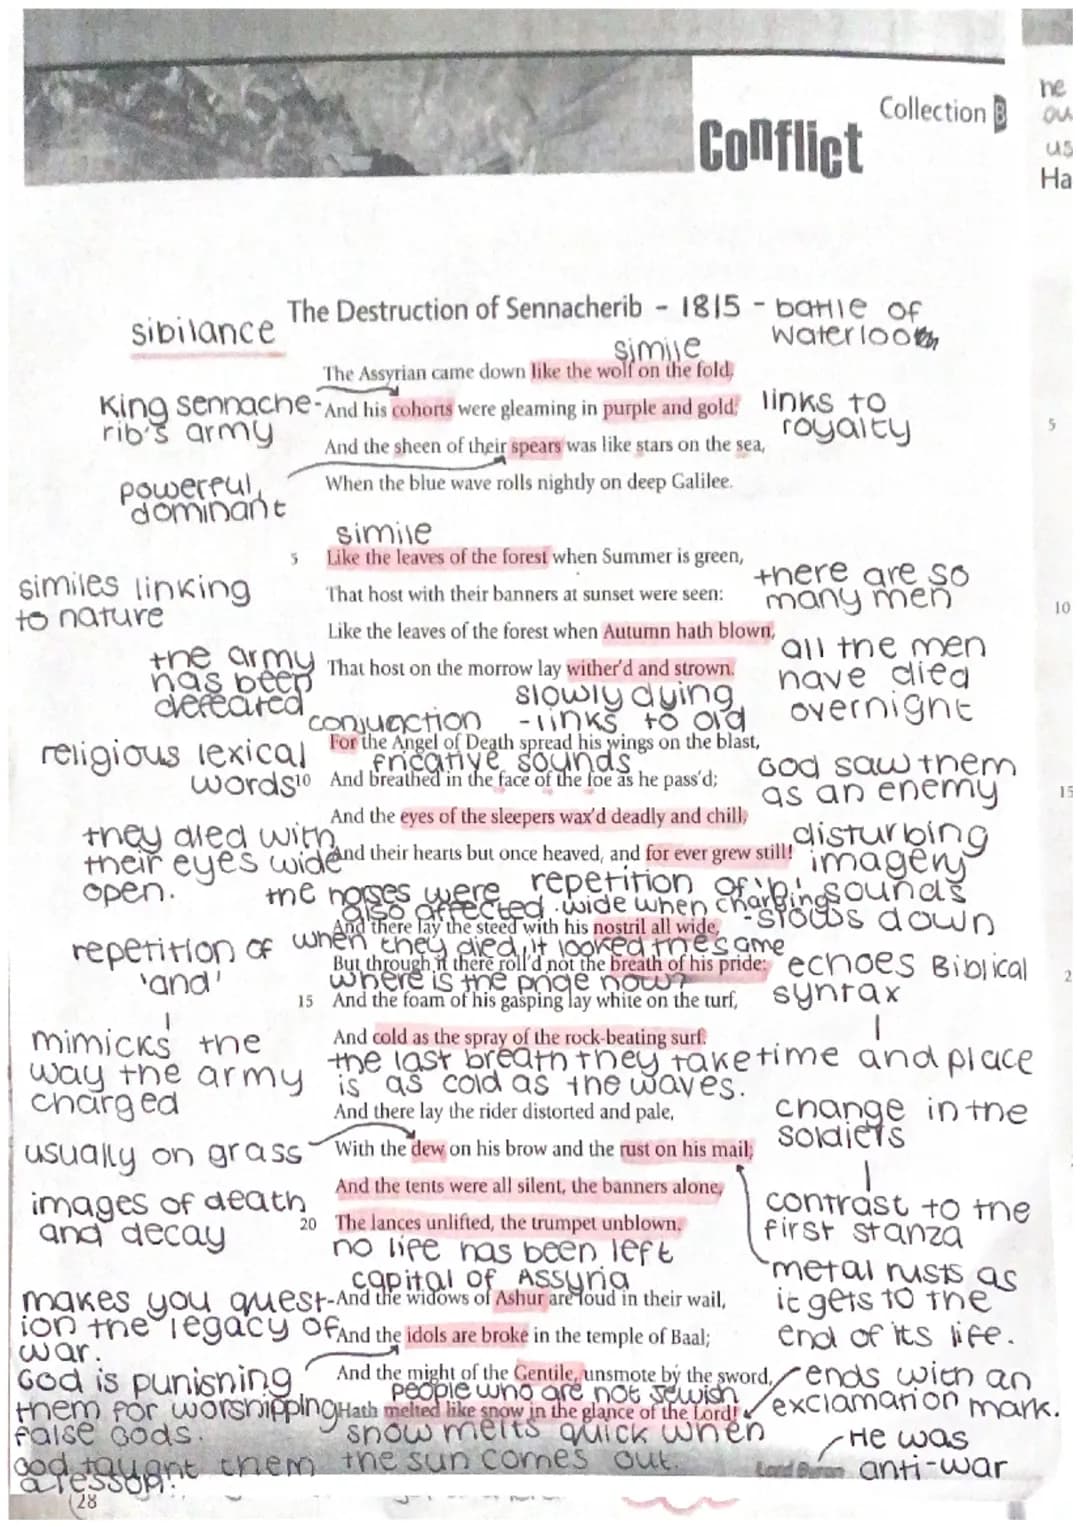 Collection B
Conflict
he
us
Ha
The Destruction of Sennacherib - 1815 - battle of
Waterloo
sibilance
simile
The Assyrian came down like the wolf on the fold,
King sennache-
rib's army
And his cohorts were gleaming in purple and gold;
links to
royalty
5
And the sheen of their spears was like stars on the sea,
powerful,
dominant
When the blue wave rolls nightly on deep Galilee.
simile
5 Like the leaves of the forest when Summer is green,
similes linking
to nature
there are so
many men
10
That host with their banners at sunset were seen:
Like the leaves of the forest when Autumn hath blown,
all the men
have died
overnight
the army
has been
defeated
That host on the morrow lay wither'd and strown.
slowly dying
- links to old
conjunction
For the Angel of Death spread his wings on the blast,
religious lexical
words
fricative sounds
10 And breathed in the face of the foe as he pass'd;
God saw them
as an enemy
15
And the eyes of the sleepers wax'd deadly and chill,
they died with
their eyes wide
open.
disturbing
imagery
And their hearts but once heaved, and for ever grew still!
repetition of 'h' sounds
- slows down
the horses were
also affected. wide when charging
And there lay the steed with his nostril all wide,
repetition of
'and'
when they died, it looked the same
But through it there roll'd not the breath of his pride;
where is the pride now?
echoes Biblical
syntax
2
15 And the foam of his gasping lay white on the turf,
And cold as the spray of the rock-beating surf.
mimicks the
way the army
charged
the last breath they take
is as cold as the waves.
time and place
And there lay the rider distorted and pale,
change in the
soldiers
usually on grass
With the dew on his brow and the rust on his mail;
images of death
and decay
And the tents were all silent, the banners alone,
20 The lances unlifted, the trumpet unblown.
contrast to the
first stanza
no life has been left
metal rusts as
it gets to the
end of its life.
capital of Assyria
And the widows of Ashur are loud in their wail,
makes you quest-
ion the legacy of
war.
And the idols are broke in the temple of Baal;
And the might of the Gentile, unsmote by the sword,
God is punishing
them for worshipping
false Gods.
God taught them
a lesson.
people who are not Jewish
Hath melted like snow in the glance of the Lord!
ends with an
exclamation mark.
snow melts quick when
the sun comes out.
Lord Byron
He was
anti-war
28